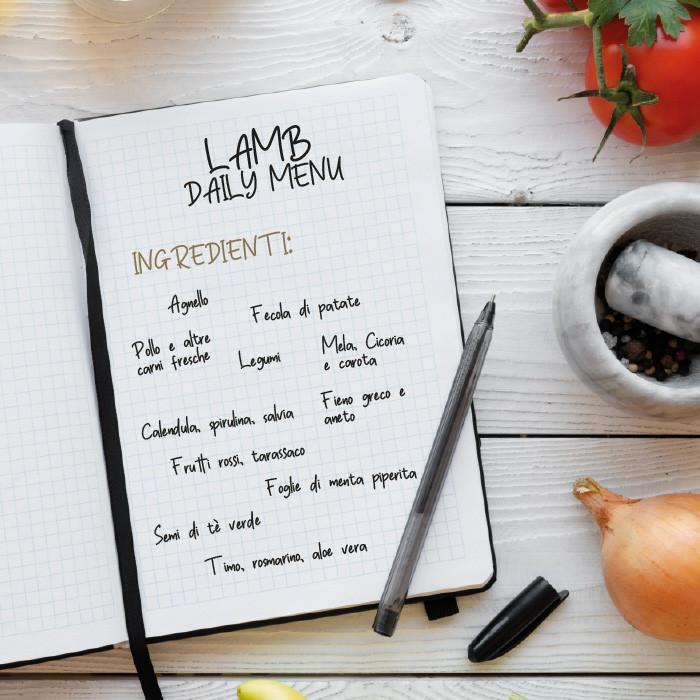 LAMB
DAILY MENU
INGREDIENTI:
Agnello
Fecola di patate
Pollo e altre
carni fresche
Legumi
Mela, Cicoria
e carota
Calendula, spirulina, salvia
Fieno greco e
aneto
Frutti rossi, tarassaco
Foglie di menta piperita
Semi di tè verde
Timo, rosmarino, aloe vera